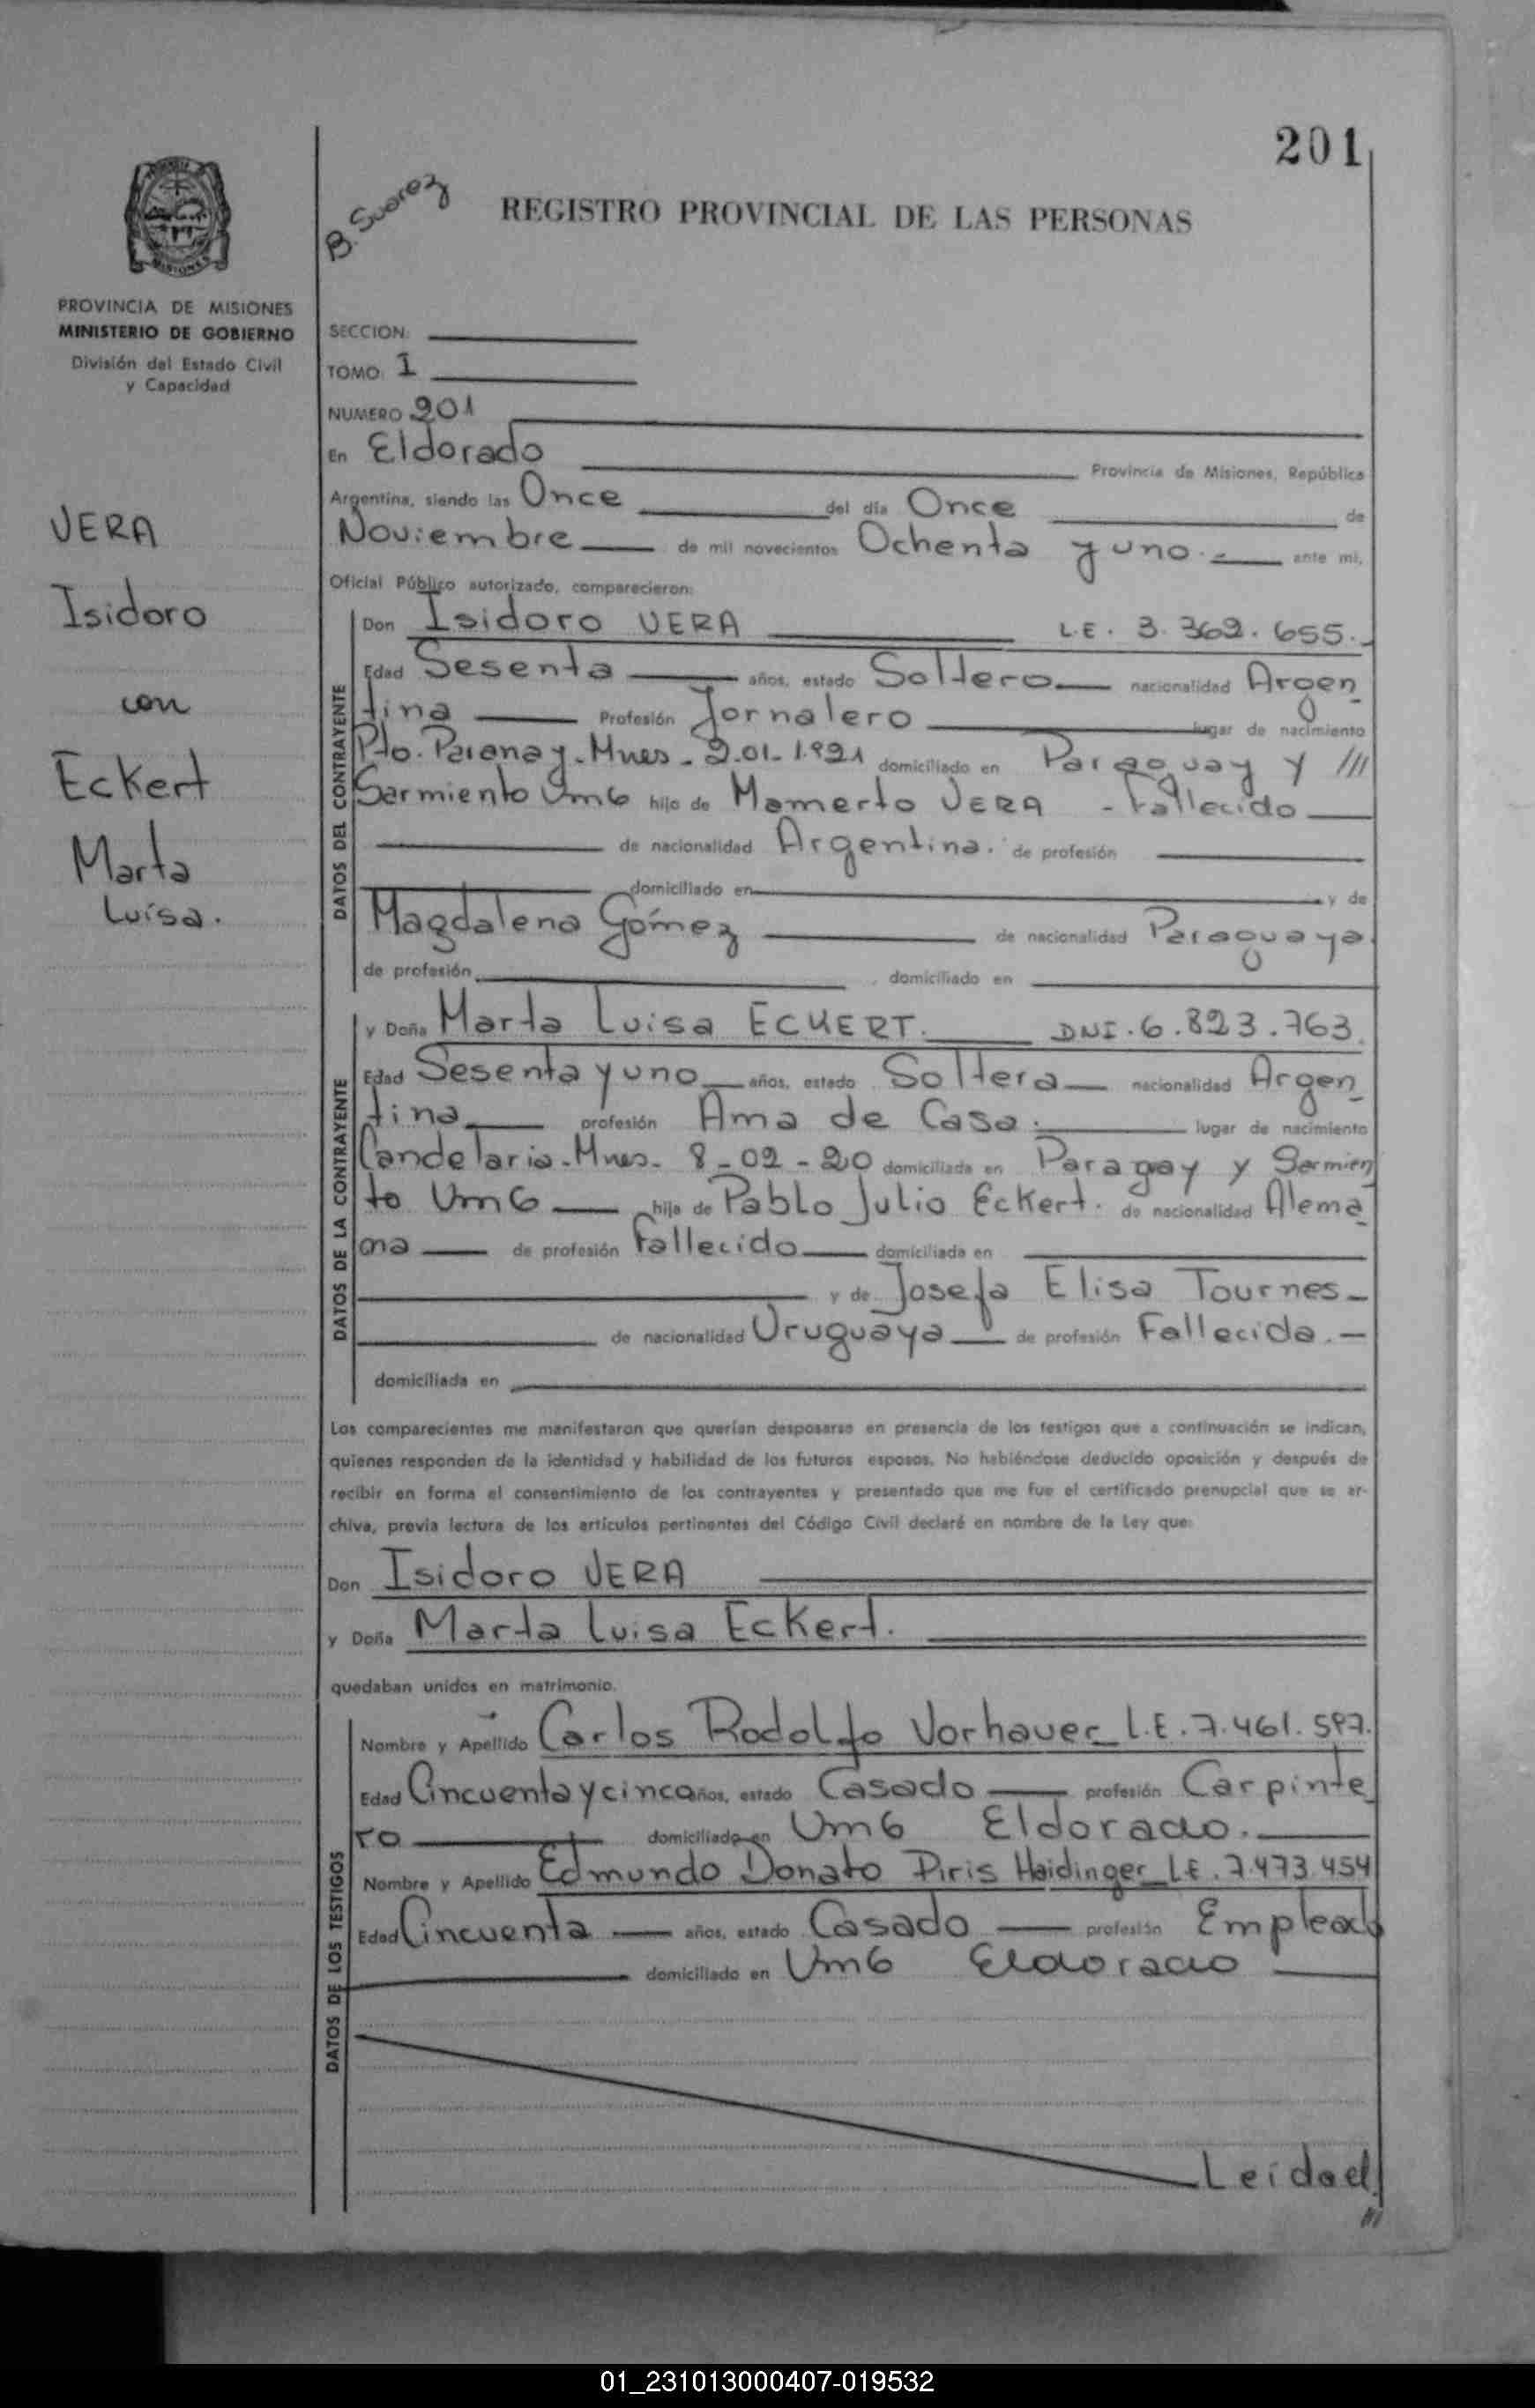 201
B. Suarez
REGISTRO PROVINCIAL DE LAS PERSONAS
MISIONES
PROVINCIA DE MISIONES
MINISTERIO DE GOBIERNO
División del Estado Civil
y Capacidad
VERA
Isidoro
con
Eckert
Marta
Luísa.
SECCION:
TOMO: 1
NUMERO 201
En Eldorado Provincia de Misiones, República
Argentina, siendo las Once del día Once de
Noviembre de mil novecientos Ochenta y uno.- ante mi,
Oficial Público autorizado, comparecieron:
DATOS DEL CONTRAYENTE
Don Isidoro VERA L.E. 3.369.655.
Edad Sesenta años, estado Soltero nacionalidad Argen
tina Profesión Jornalero lugar de nacimiento
Pto. Paranay-Mnes- 2.01-1921 domiciliado en Paraguay y ///
Sarmiento Vm6 hijo de Mamerto VERA - Fallecido
de nacionalidad Argentina. de profesión
domiciliado en y de
Magdalena Gómez de nacionalidad Paraguaya.
de profesión domiciliado en
DATOS DE LA CONTRAYENTE
y Doña Marta Luisa ECKERT. DNI.6.823.763.
Edad Sesenta y uno años, estado Soltera nacionalidad Argen
tina profesión Ama de Casa. lugar de nacimiento
Candelaria-Mnes- 8-02-20 domiciliada en Paragay y Sarmien
to Vm6 hija de Pablo Julio Eckert. de nacionalidad Alema
na de profesión Fallecido domiciliada en
y de Josefa Elisa Tournes-
de nacionalidad Uruguaya de profesión Fallecida.-
domiciliada en
Los comparecientes me manifestaron que querían desposarse en presencia de los testigos que a continuación se indican,
quienes responden de la identidad y habilidad de los futuros esposos. No habiéndose deducido oposición y después de
recibir en forma el consentimiento de los contrayentes y presentado que me fue el certificado prenupcial que se ar-
chiva, previa lectura de los artículos pertinentes del Código Civil declaré en nombre de la Ley que:
Don Isidoro VERA
y Doña Marta Luisa Eckert.
quedaban unidos en matrimonio.
DATOS DE LOS TESTIGOS
Nombre y Apellido Carlos Rodolfo Vorhauer L.E.7.461.597.
Edad Cincuenta y cinco años, estado Casado profesión Carpinte
ro domiciliado en Vm6 Eldorado.
Nombre y Apellido Edmundo Donato Piris Haidinger L.E.7.473.454
Edad Cincuenta años, estado Casado profesión Empleado
domiciliado en Vm6 Eldorado
Leída el
///
01_231013000407-019532